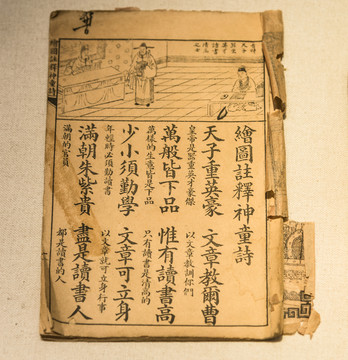 繪圖註釋神童詩
天子重英豪 文章教爾曹
皇帝是器重英才豪傑 以文章教訓你們
萬般皆下品 惟有讀書高
萬樣的生意皆是下品 只有讀書是清高的
少小須勤學 文章可立身
年輕時必須勤讀書 以文章就可立身行事
滿朝朱紫貴 盡是讀書人
滿朝的官員 都是讀書的人